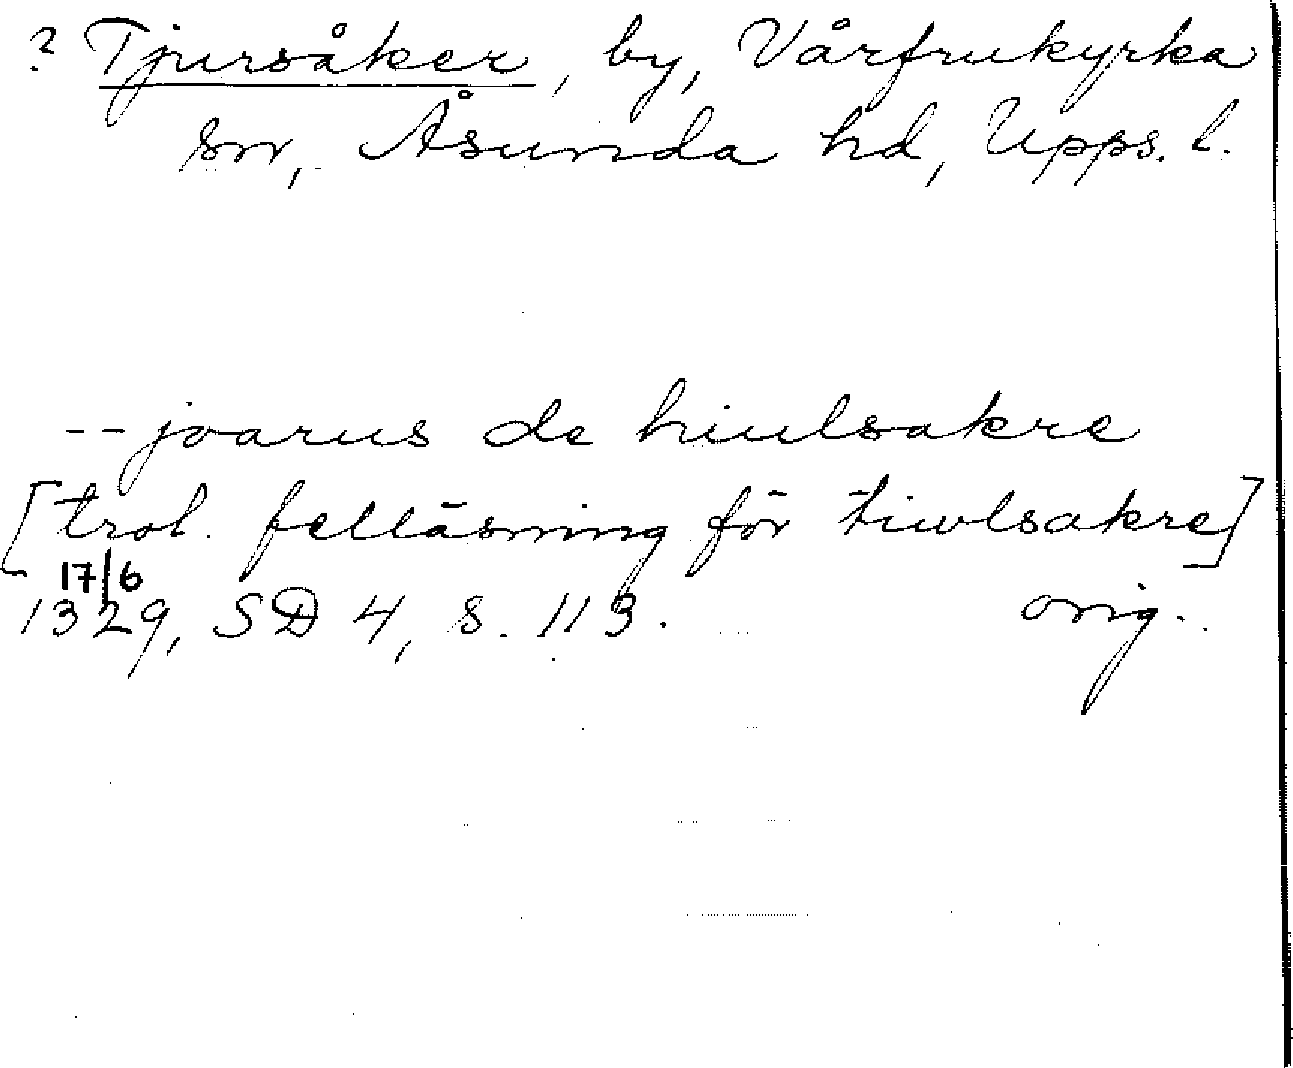 ? Tjursåker, by, Vårfrukyrka
sn, Åsunda hd, Upps. l.
-- joarus de hiulsakre
[trol. felläsning för tiwlsakre]
17/6
1329, SD 4, s. 113. orig.